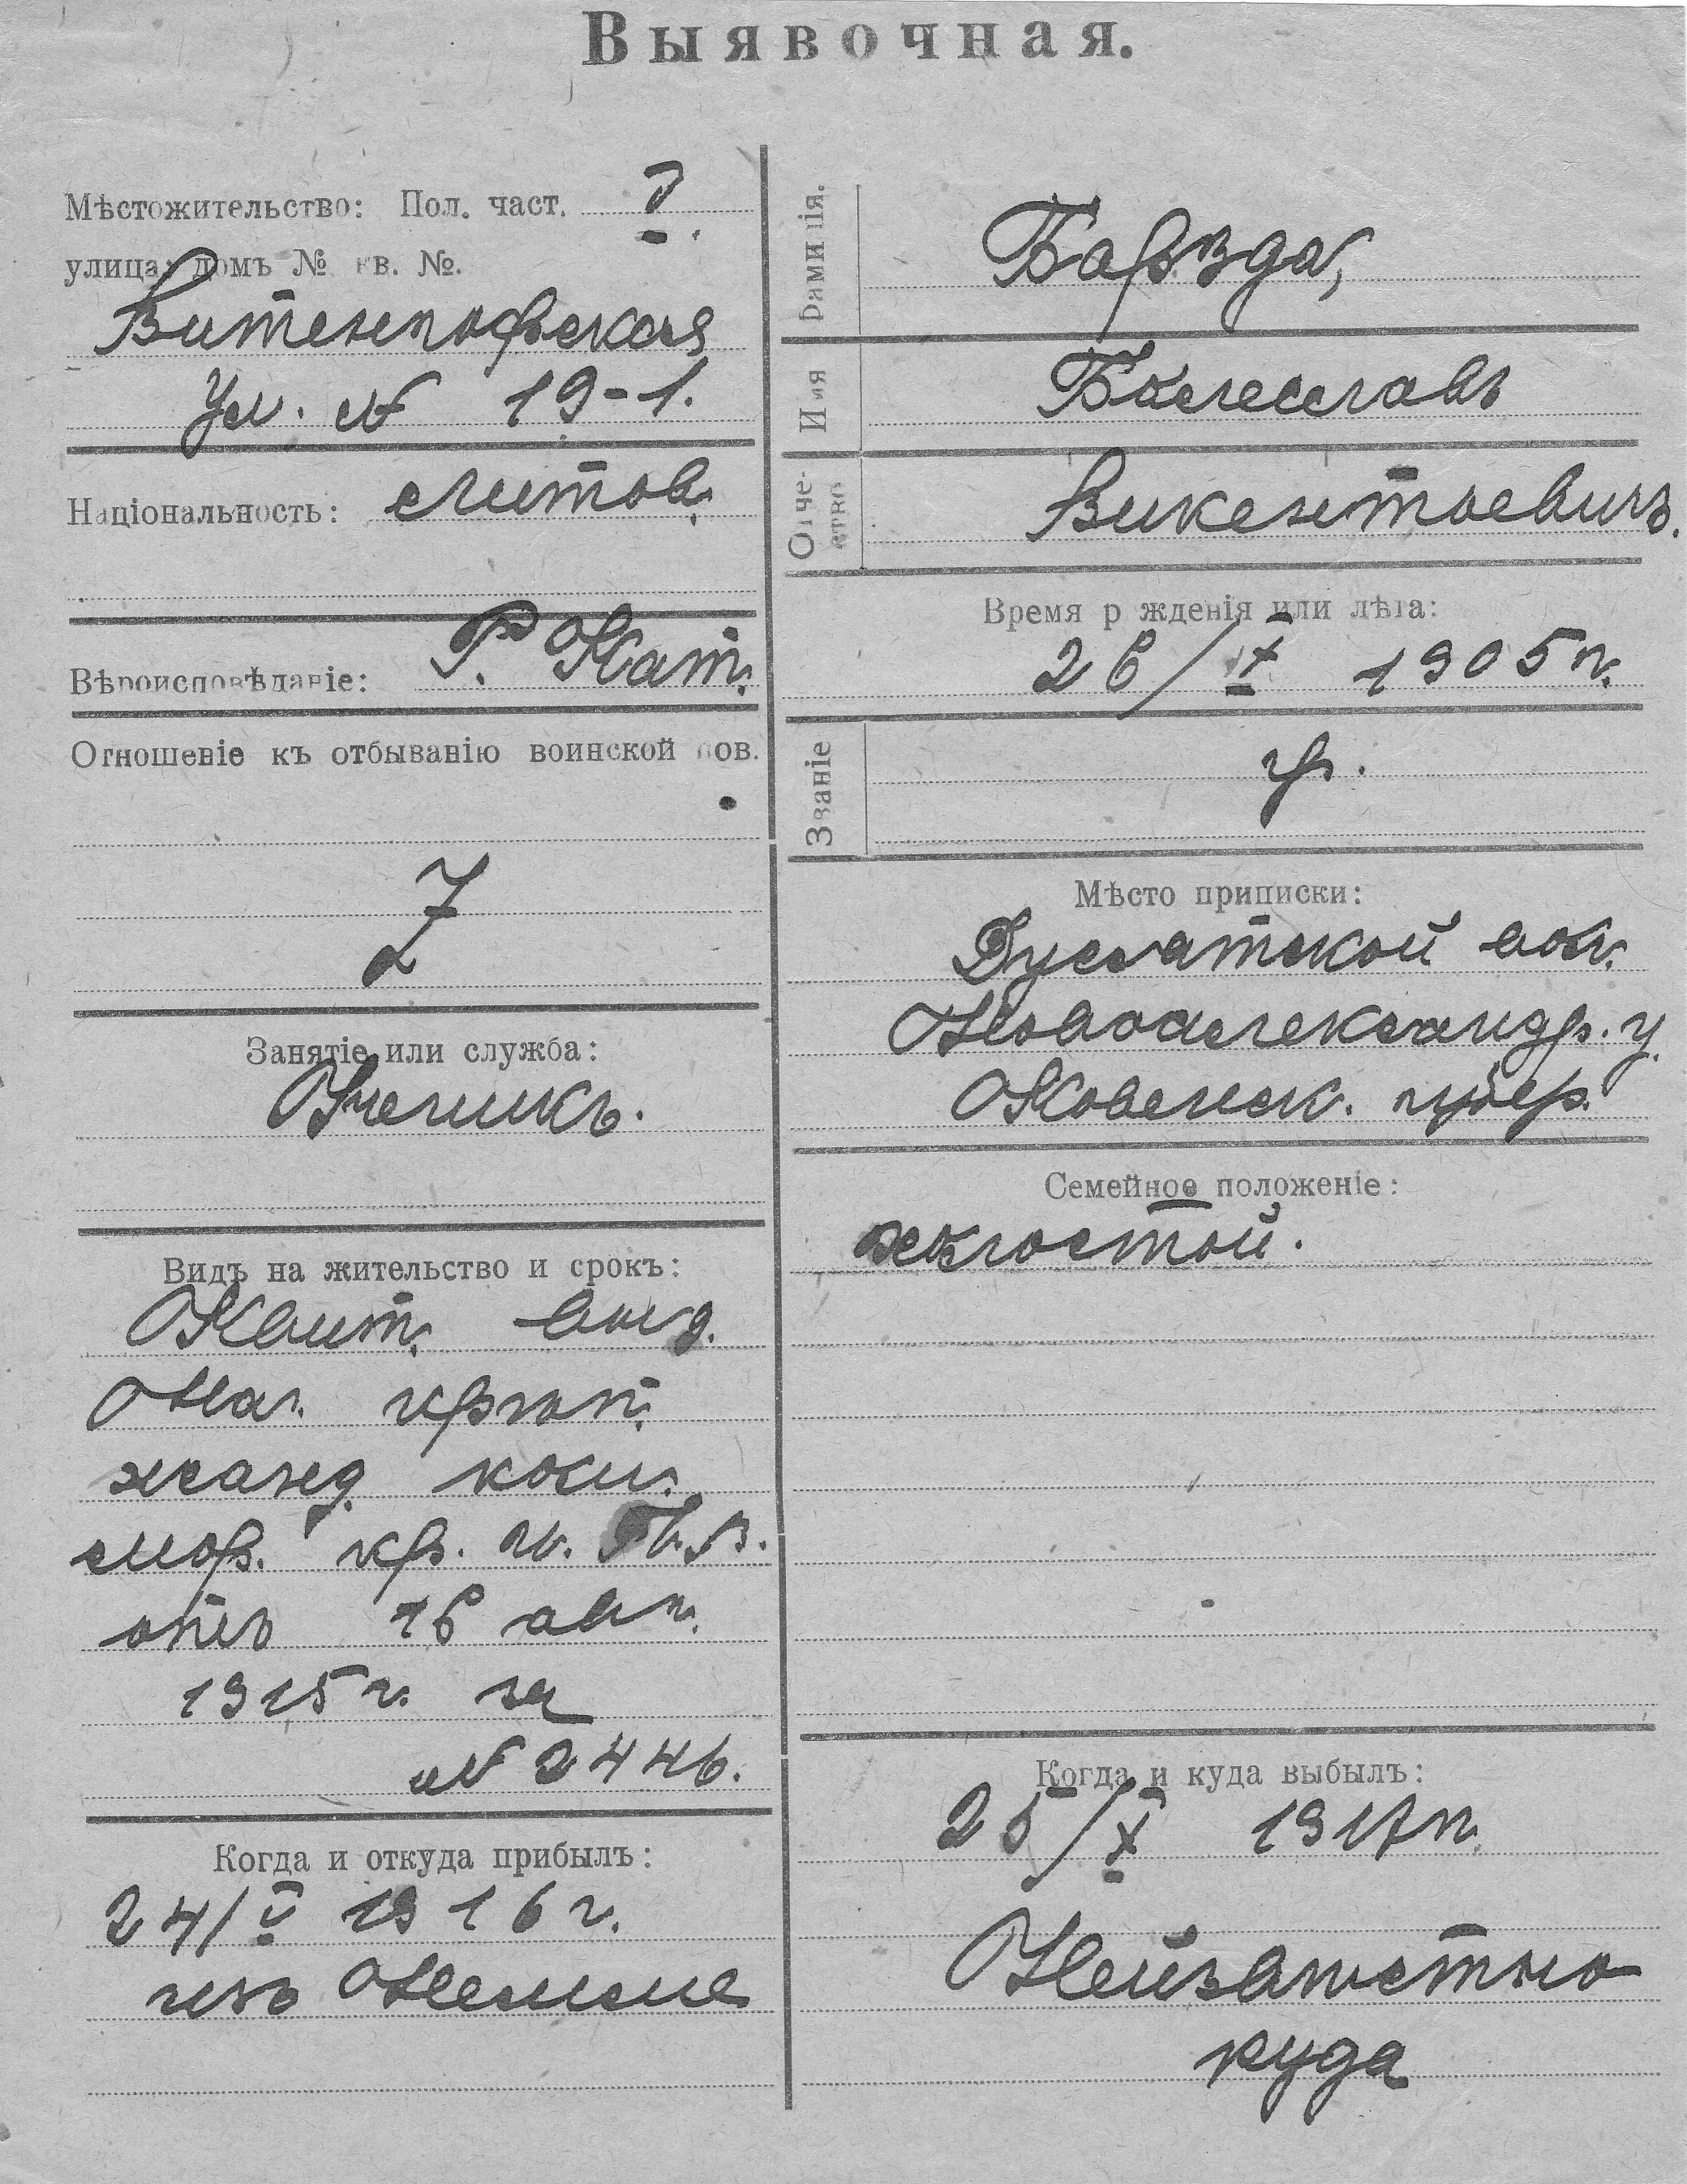 Выявочная.
Мѣстожительство: Пол. част.
улица: домъ № кв. №.
Витенгофская
ул. № 19-1.
Національность: Литов.
Вѣроисповѣданіе: Р. Кат.
Отношеніе къ отбыванію воинской пов.
Занятіе или служба:
Ученикъ.
Видъ на жительство и срокъ:
Квит. выд.
Нач. крѣп.
жанд. ком.
мор. кр. И. П. В.
отъ 16 авг.
1915 г. за
№ 2446.
Когда и откуда прибылъ:
24/V 1916 г.
изъ Немме
Фамилія.
Барзда,
Имя
Болеславъ
Отчество
Викентьевичъ.
Время рожденія или лѣта:
26/IX 1905 г.
Званіе
кр.
Мѣсто приписки:
Дусятской вол.
Новоалександр. у.
Ковенск. губер.
Семейное положеніе:
холостой.
Когда и куда выбылъ:
25/X 1917 г.
Неизвѣстно
куда